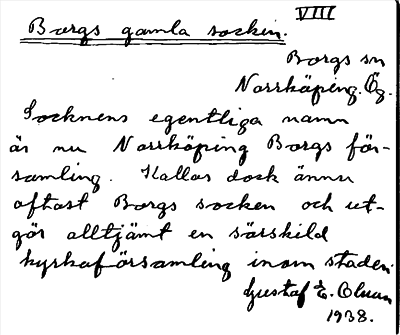 VIII
Borgs gamla socken.
Borgs sn
Norrköping. Ög.
Socknens egentliga namn
är nu Norrköping Borgs för-
samling. Kallas dock ännu
oftast Borgs socken och ut-
gör alltjämt en särskild
kyrkoförsamling inom staden.
Gustaf E. Olsson
1938.